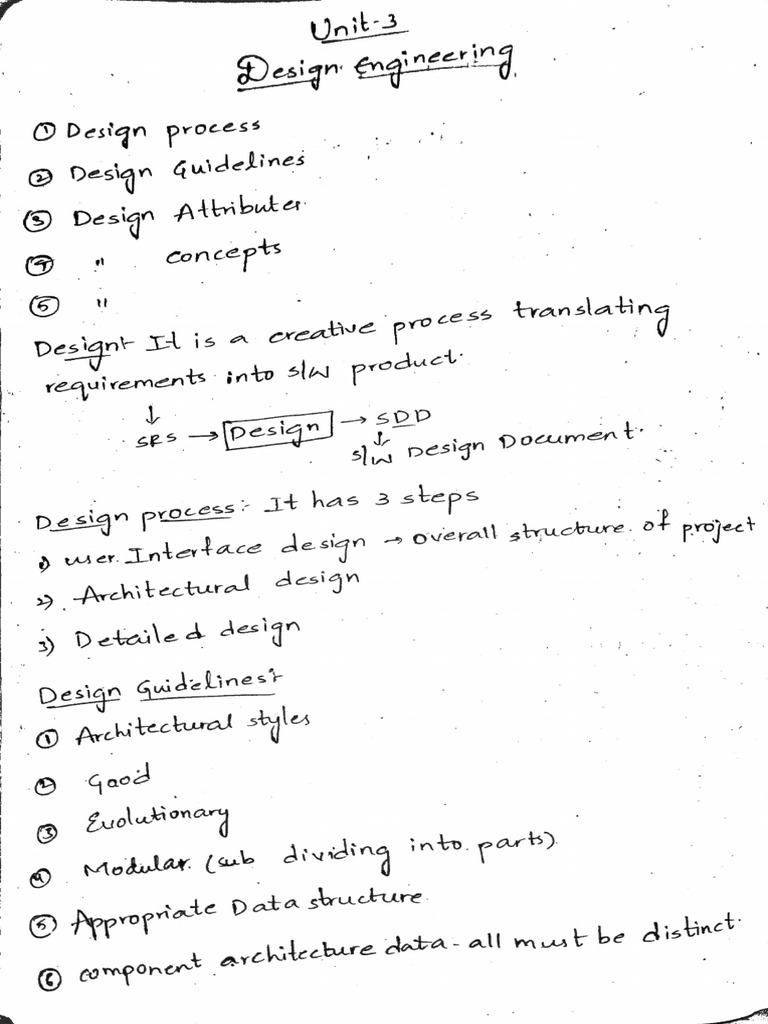 Unit-3
Design Engineering
① Design process
② Design Guidelines
③ Design Attributes
④ " concepts
⑤ "
Design:- It is a creative process translating
requirements into s/w product.
↓
SRS → Design → SDD
↓
s/w Design Document.
Design process:- It has 3 steps
1) user Interface design → overall structure of project
2) Architectural design
3) Detailed design
Design Guidelines:-
① Architectural styles
② Good
③ Evolutionary
④ Modular (sub dividing into parts)
⑤ Appropriate Data structure
⑥ component architecture data - all must be distinct.